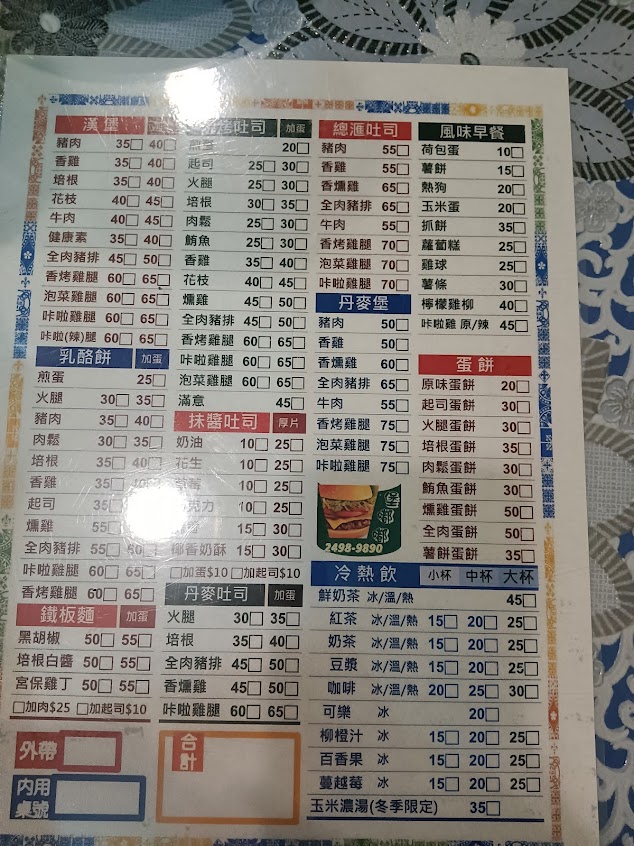 漢堡
豬肉 35□ 40□
香雞 35□ 40□
培根 35□ 40□
花枝 40□ 45□
牛肉 40□ 45□
健康素 35□ 40□
全肉豬排 45□ 50□
香烤雞腿 60□ 65□
泡菜雞腿 60□ 65□
咔啦雞腿 60□ 65□
咔啦(辣)腿 60□ 65□
乳酪餅 加蛋
煎蛋 25□
火腿 30□ 35□
豬肉 35□ 40□
肉鬆 30□ 35□
培根 35□ 40□
香雞 35□ 40□
起司 35□
燻雞 55□
全肉豬排 55□ 50□
咔啦雞腿 60□ 65□
香烤雞腿 60□ 65□
鐵板麵 加蛋
黑胡椒 50□ 55□
培根白醬 50□ 55□
宮保雞丁 50□ 55□
□加肉$25 □加起司$10
外帶
內用桌號
吐司 加蛋
20□
起司 25□ 30□
火腿 25□ 30□
培根 30□ 35□
肉鬆 25□ 30□
鮪魚 25□ 30□
香雞 35□ 40□
花枝 40□ 45□
燻雞 45□ 50□
全肉豬排 45□ 50□
香烤雞腿 60□ 65□
咔啦雞腿 60□ 65□
泡菜雞腿 60□ 65□
滿意 45□
抹醬吐司 厚片
奶油 10□ 25□
花生 10□ 25□
10□ 25□
克力 10□ 25□
15□ 30□
椰香奶酥 15□ 30□
□加蛋$10 □加起司$10
丹麥吐司 加蛋
火腿 30□ 35□
培根 35□ 40□
全肉豬排 45□ 50□
香燻雞 45□ 50□
咔啦雞腿 60□ 65□
合計
總滙吐司
豬肉 55□
香雞 55□
香燻雞 65□
全肉豬排 65□
牛肉 55□
香烤雞腿 70□
泡菜雞腿 70□
咔啦雞腿 70□
丹麥堡
豬肉 50□
香雞 50□
香燻雞 60□
全肉豬排 65□
牛肉 55□
香烤雞腿 75□
泡菜雞腿 75□
咔啦雞腿 75□
2498-9890
風味早餐
荷包蛋 10□
薯餅 15□
熱狗 20□
玉米蛋 20□
抓餅 35□
蘿蔔糕 25□
雞球 25□
薯條 30□
檸檬雞柳 40□
咔啦雞 原/辣 45□
蛋餅
原味蛋餅 20□
起司蛋餅 30□
火腿蛋餅 30□
培根蛋餅 35□
肉鬆蛋餅 30□
鮪魚蛋餅 30□
燻雞蛋餅 50□
全肉蛋餅 50□
薯餅蛋餅 35□
冷熱飲 小杯 中杯 大杯
鮮奶茶 冰/溫/熱 45□
紅茶 冰/溫/熱 15□ 20□ 25□
奶茶 冰/溫/熱 15□ 20□ 25□
豆漿 冰/溫/熱 15□ 20□ 25□
咖啡 冰/溫/熱 20□ 25□ 30□
可樂 冰 20□
柳橙汁 冰 15□ 20□ 25□
百香果 冰 15□ 20□ 25□
蔓越莓 冰 15□ 20□ 25□
玉米濃湯(冬季限定) 35□